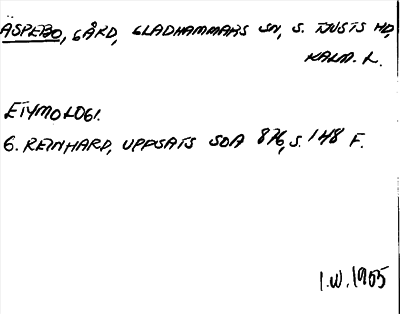 ÄSPEBO, GÅRD, GLADHAMMARS SN, S. TJUSTS HD,
KALM. L.
ETYMOLOGI.
G. REINHARD, UPPSATS SOA 876, S. 148 F.
I.W. 1955